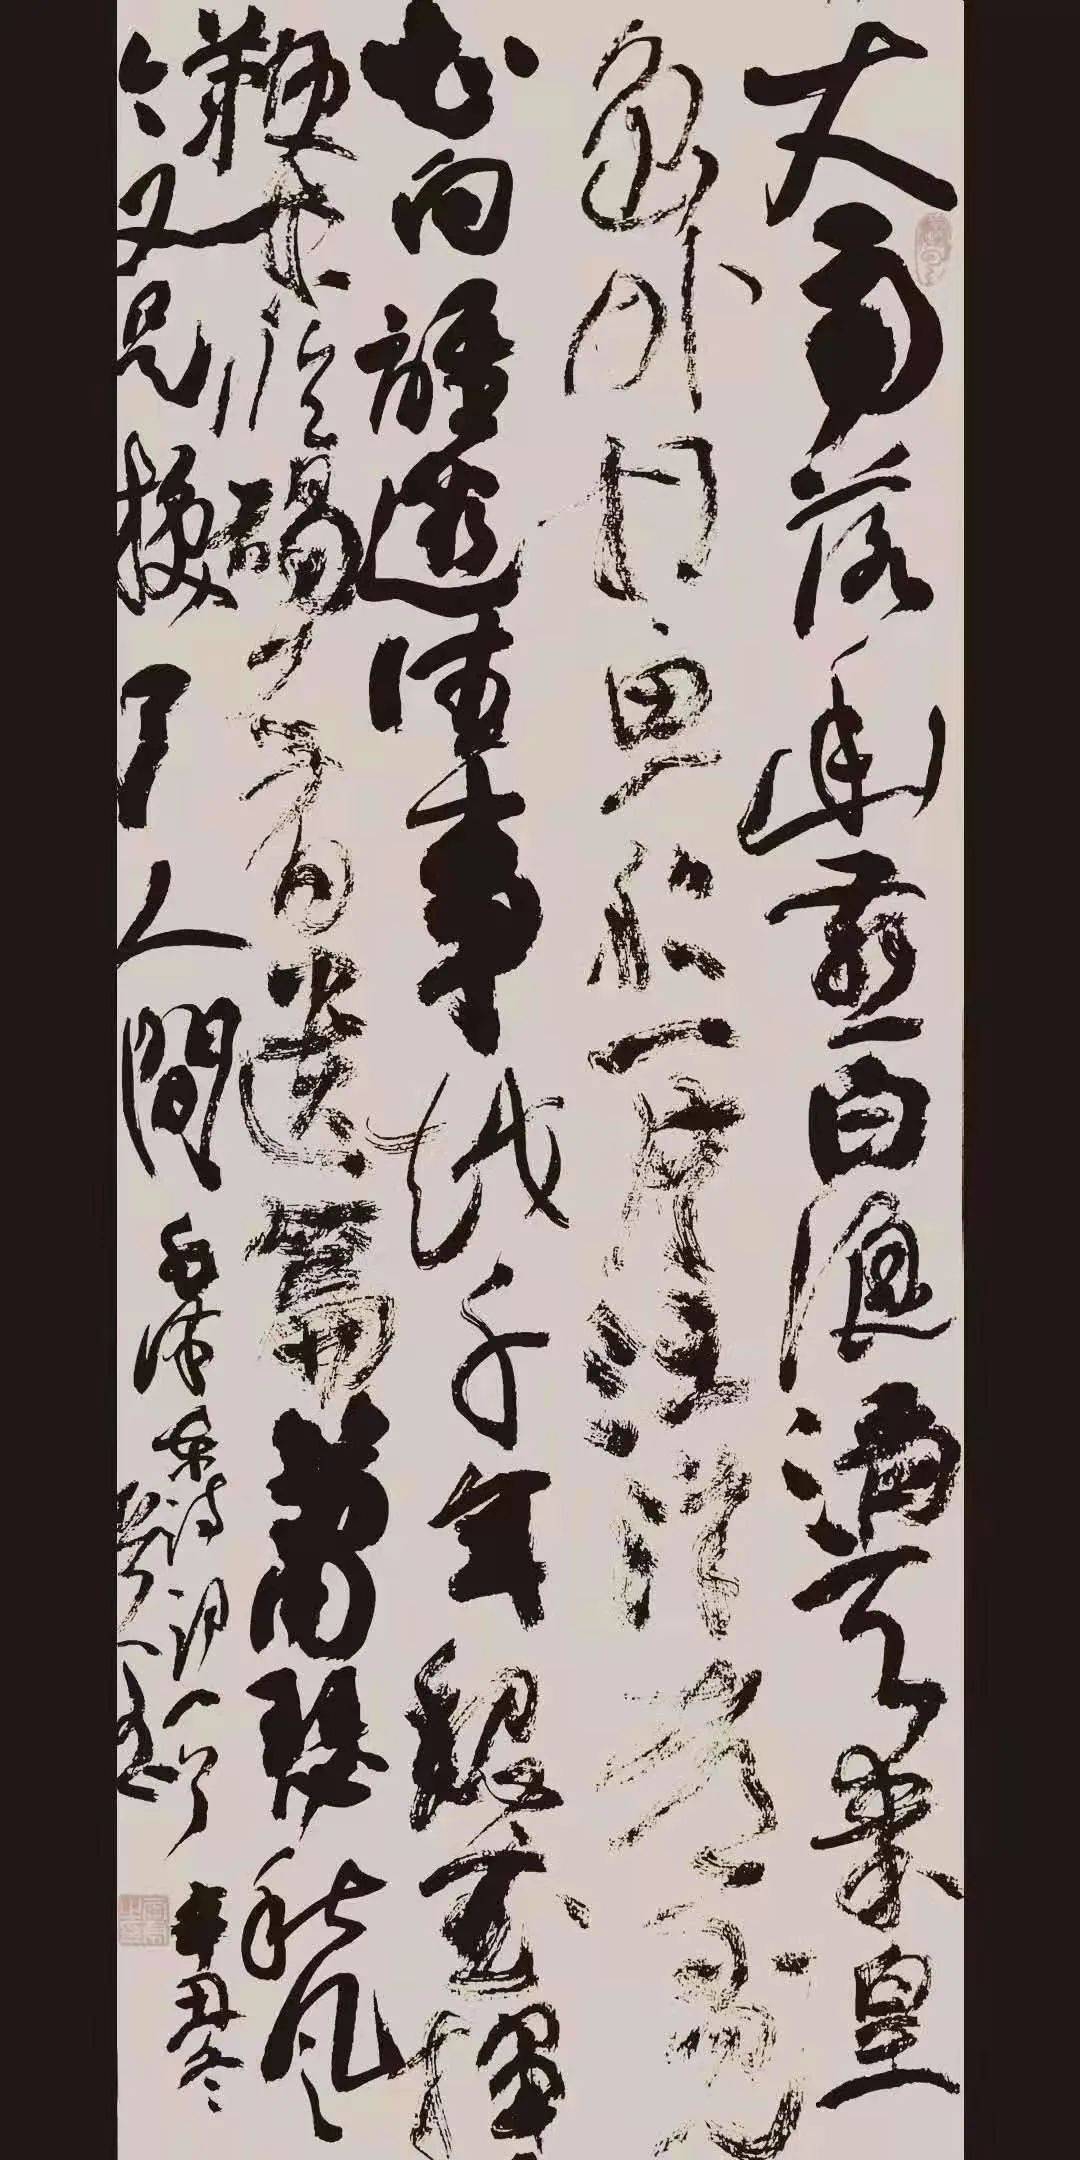 大雨落幽燕白浪滔天秦皇
島外打魚船一片汪洋都不見
知向誰邊往事越千年魏武揮
鞭東臨碣石有遺篇蕭瑟秋風
今又是換了人間
毛澤東詩詞一首
辛丑冬